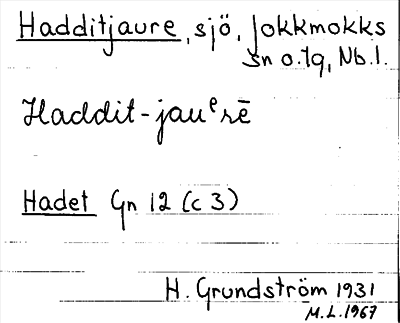 Hadditjaure, sjö, Jokkmokks
sn o. tg, Nb.l.
Haddit-jauᵉrē
Hadet Gn 12 (c 3)
H. Grundström 1931
M.L. 1967